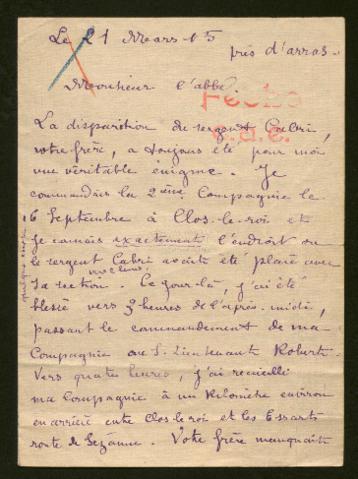 Le 21 Mars 15
près d'arras.
Monsieur l'abbé
La disparition du sergent Cabri,
votre frère, a toujours été pour moi
une véritable énigme. Je
commandais la 2ème Compagnie le
6 Septembre à Clos-le-roi et
je connais exactement l'endroit où
le sergent Cabri avait été placé avec
sa section. Ce jour-là, j'ai été
blessé vers 3 heures de l'après-midi,
passant le commandement de ma
Compagnie au S. Lieutenant Robert.
Vers quatre heures, j'ai recueilli
ma Compagnie à un Kilomètre environ
en arrière entre Clos le roi et les Essarts
route de Sézanne. Votre frère manquait